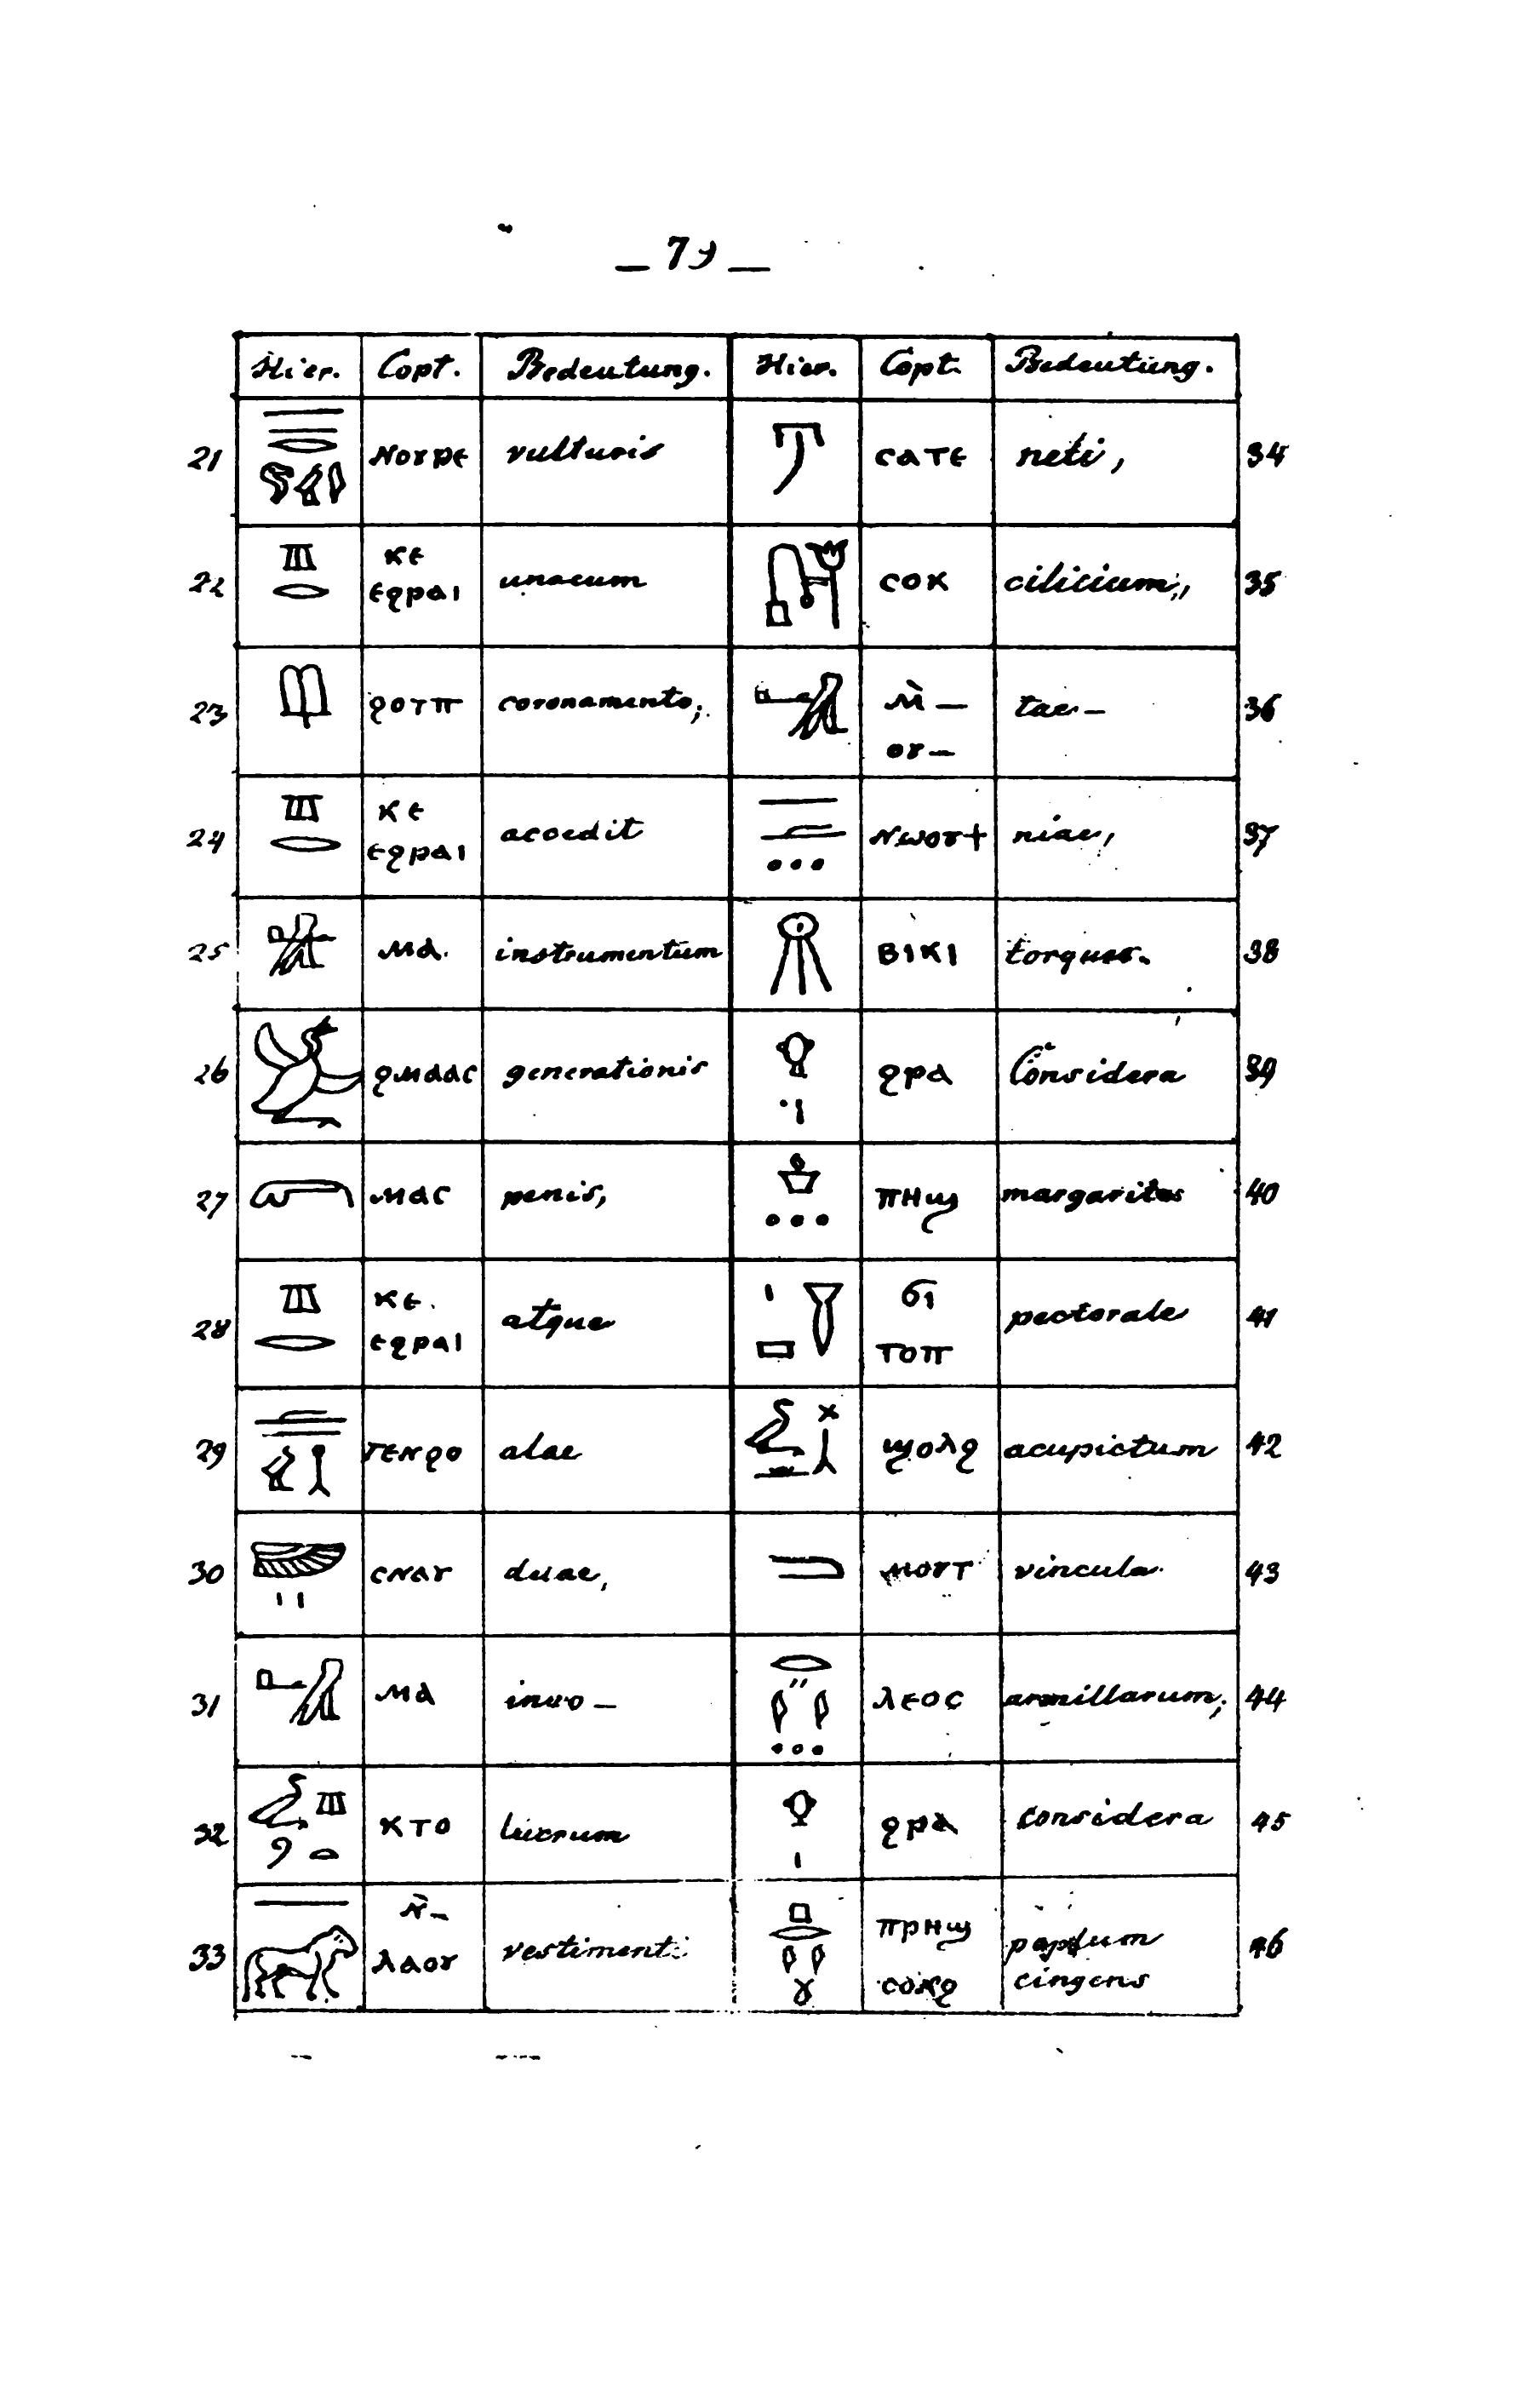 — 79 —
Hier. Copt. Bedeutung. Hier. Copt. Bedeutung.
21 ⲛⲟⲩⲣⲉ vulturis ⲥⲁⲧⲉ neti, 34
22 ⲕⲉ ⲉϩⲣⲁⲓ unacum ⲥⲟⲕ cilicium, 35
23 ϩⲟⲧⲡ coronamento; ⲙ̀— ⲟⲩ— tae— 36
24 ⲕⲉ ⲉϩⲣⲁⲓ accedit ⲛⲱⲟⲩϯ niae, 37
25 ⲙⲁ. instrumentum ⲃⲓⲕⲓ torques. 38
26 ϩⲙⲁⲁⲥ generationis ϩⲣⲁ Considera 39
27 ⲙⲁⲥ penis, ⲡⲏϣ margaritas 40
28 ⲕⲉ. ⲉϩⲣⲁⲓ atque ϭⲓ ⲧⲟⲡ pectorale 41
29 ⲧⲉⲛϩⲟ alae ϣⲟⲗϩ acupictum 42
30 ⲥⲛⲁⲩ duae, ⲙⲟⲩⲧ vincula 43
31 ⲙⲁ invo— ⲗⲉⲟⲥ armillarum; 44
32 ⲕⲧⲟ lucrum ϩⲣⲁ considera 45
33 ⲛ̀— ⲗⲁⲟⲩ vestimenti ⲡⲣⲏϣ ⲥⲟⲕϩ cingens 46